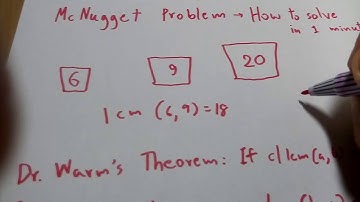 McNugget Problem → How to solve
in 1 minut
6 9 20
lcm (6,9) = 18
Dr. Warm's Theorem: If c/lcm(a,